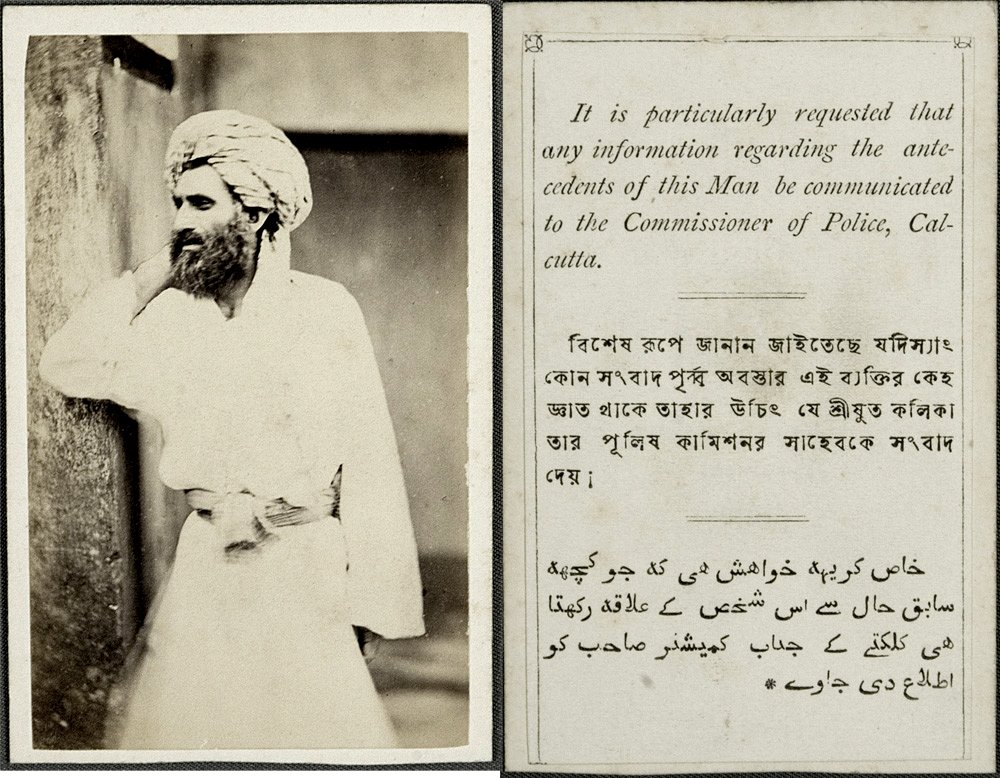 It is particularly requested that
any information regarding the ante-
cedents of this Man be communicated
to the Commissioner of Police, Cal-
cutta.
বিশেষ রূপে জানান জাইতেছে যদিস্যাৎ
কোন সংবাদ পূর্ব্ব অবস্তার এই ব্যক্তির কেহ
জ্ঞাত থাকে তাহার উচিৎ যে শ্রীযুত কলিকা
তার পুলিষ কামিশনর সাহেবকে সংবাদ
দেয়।
خاص کر یہہ خواهش هی که جو کچهه
سابق حال سے اس شخص کے علاقه رکهتا
هی کلکتے کے جناب کمیشنر صاحب کو
اطلاع دی جاوے *